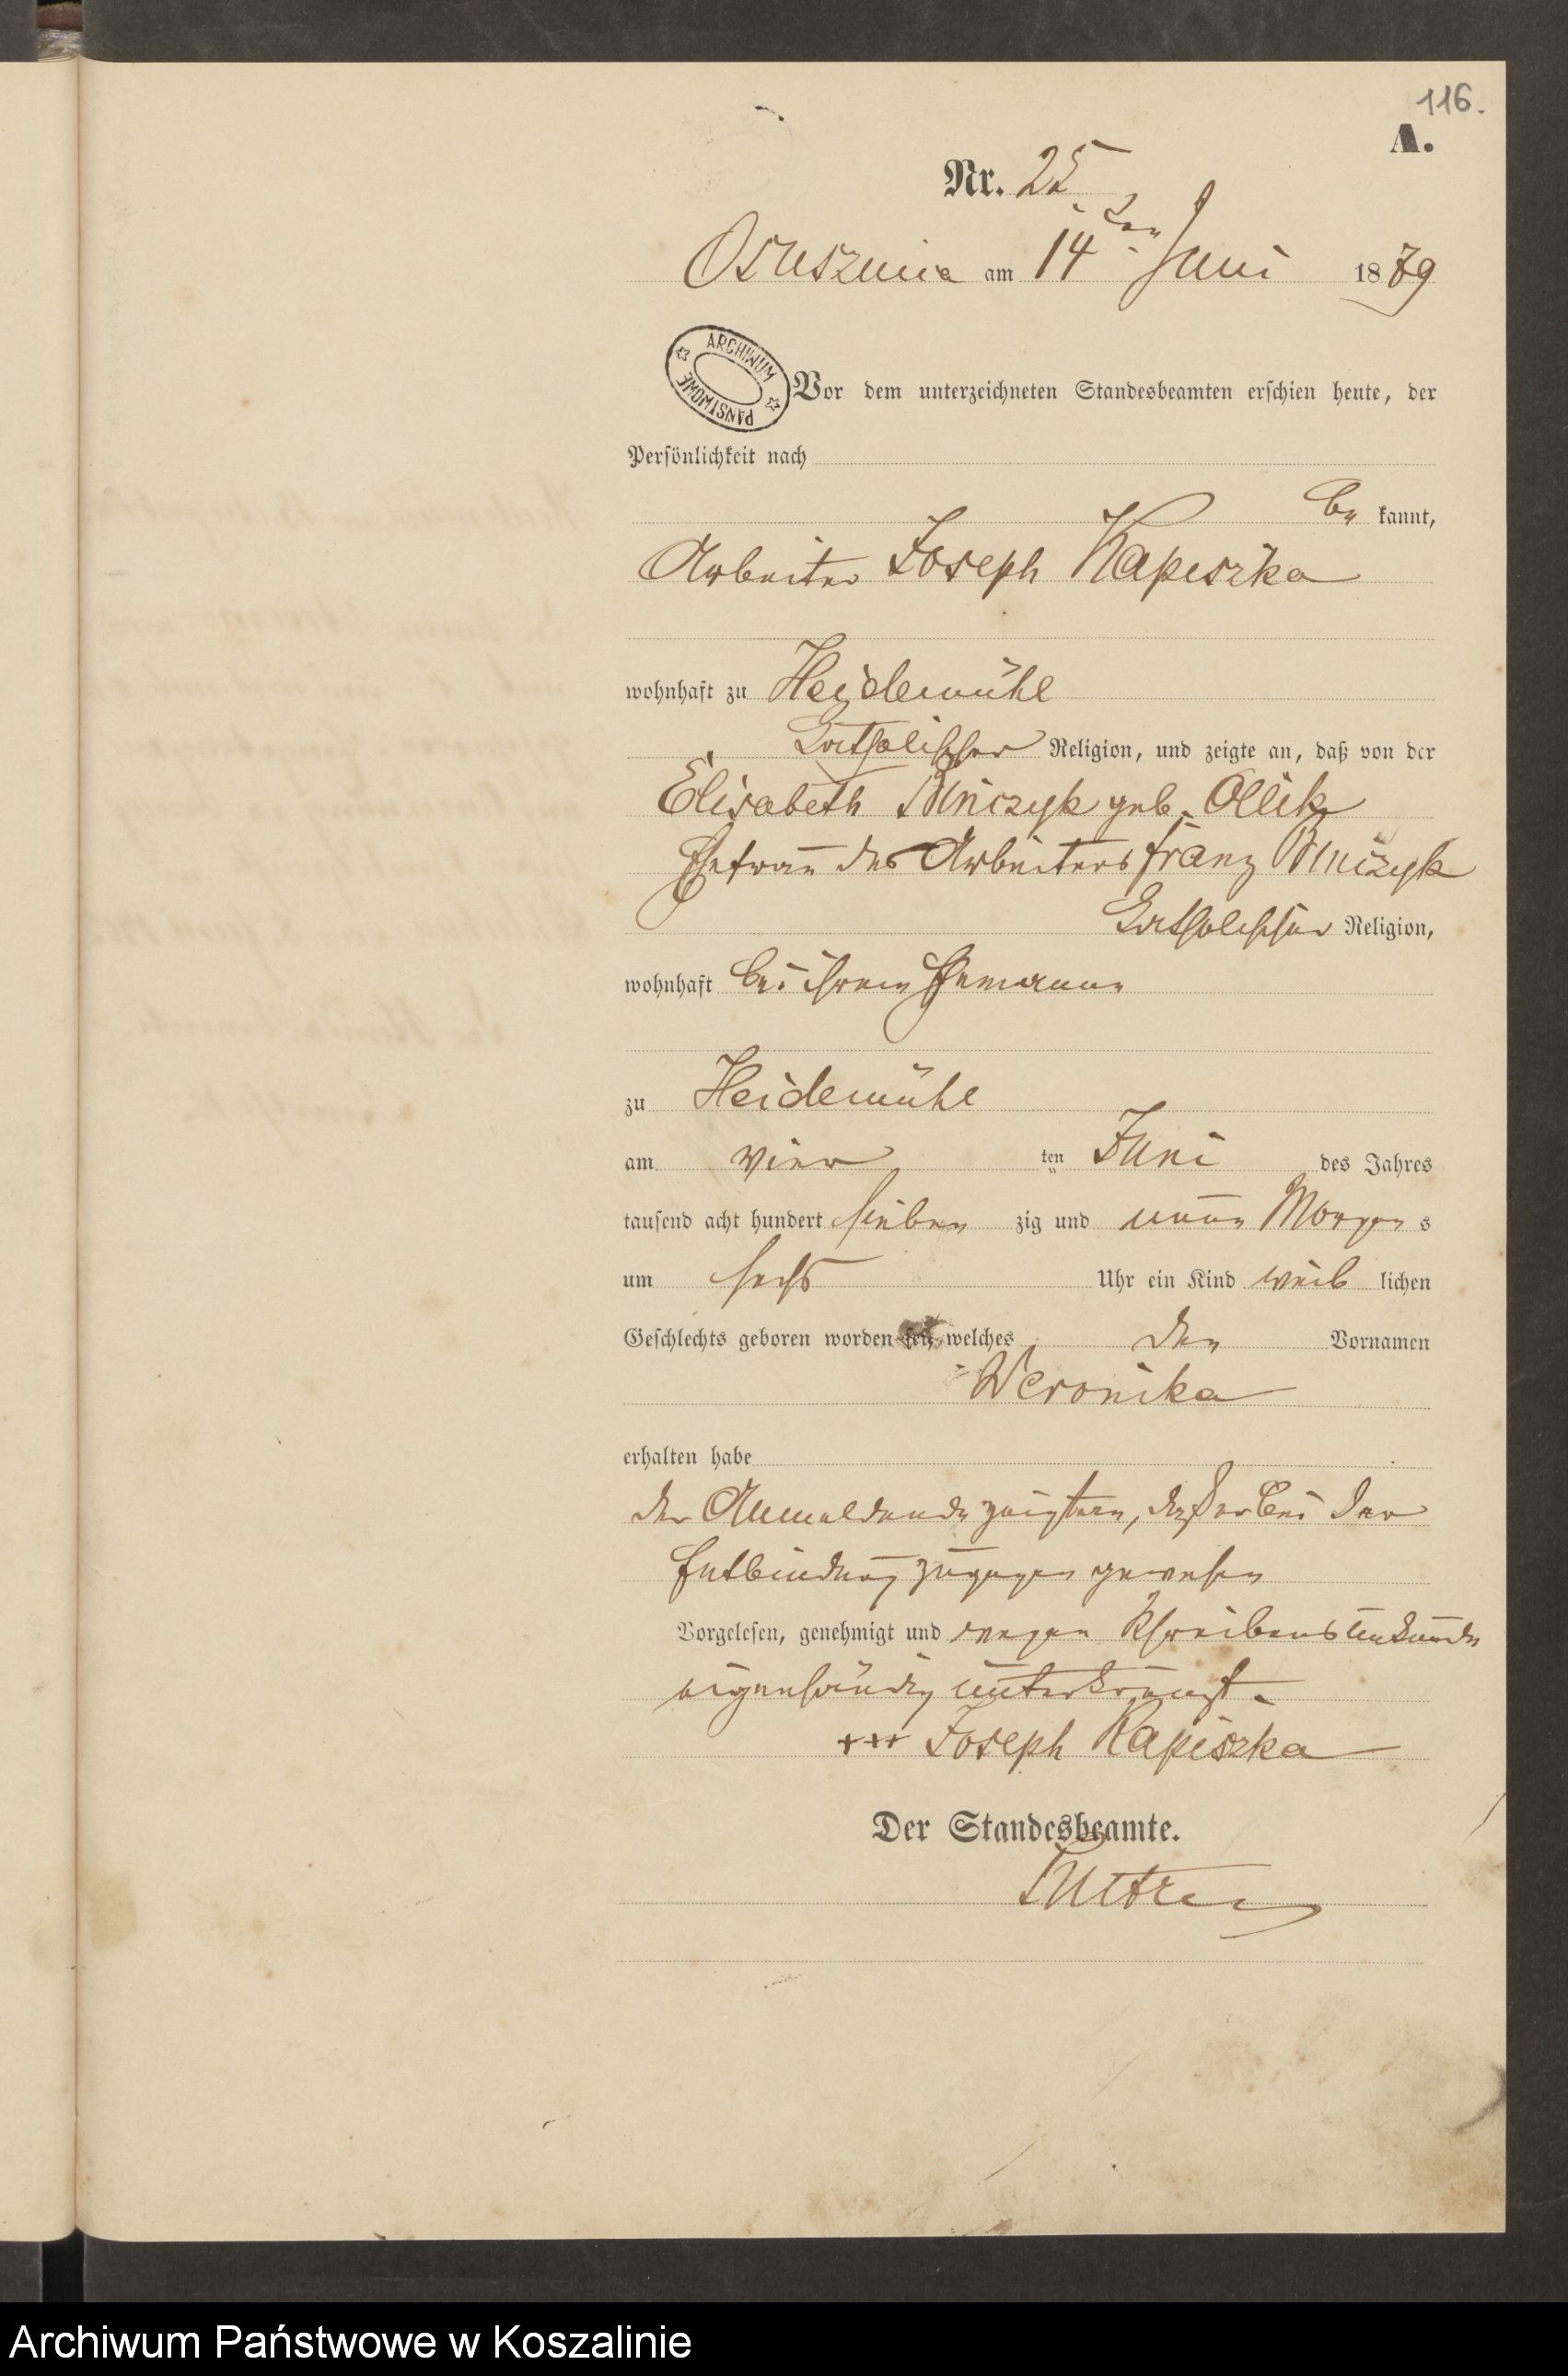 116.
A.
Nr. 25
Osusznica am 14ten Juni 1879
ARCHIWUM PAŃSTWOWE
Vor dem unterzeichneten Standesbeamten erschien heute, der
Persönlichkeit nach
be kannt,
Arbeiter Joseph Kapiszka
wohnhaft zu Heidemühl
katholischer Religion, und zeigte an, daß von der
Elisabeth geb. Ollik
Ehefrau des Arbeiters Franz
katholischer Religion,
wohnhaft bei ihrem Ehemanne
zu Heidemühl
am vier ten Juni des Jahres
tausend acht hundert sieben zig und neun Morgen s
um sechs Uhr ein Kind weib lichen
Geschlechts geboren worden sei, welches den Vornamen
Veronika
erhalten habe
der Anmeldende zeigt an, daß er bei der
Entbindung zugegen gewesen
Vorgelesen, genehmigt und wegen Schreibensunkunde
eigenhändig unterkreuzt.
+++ Joseph Kapiszka
Der Standesbeamte.
Archiwum Państwowe w Koszalinie